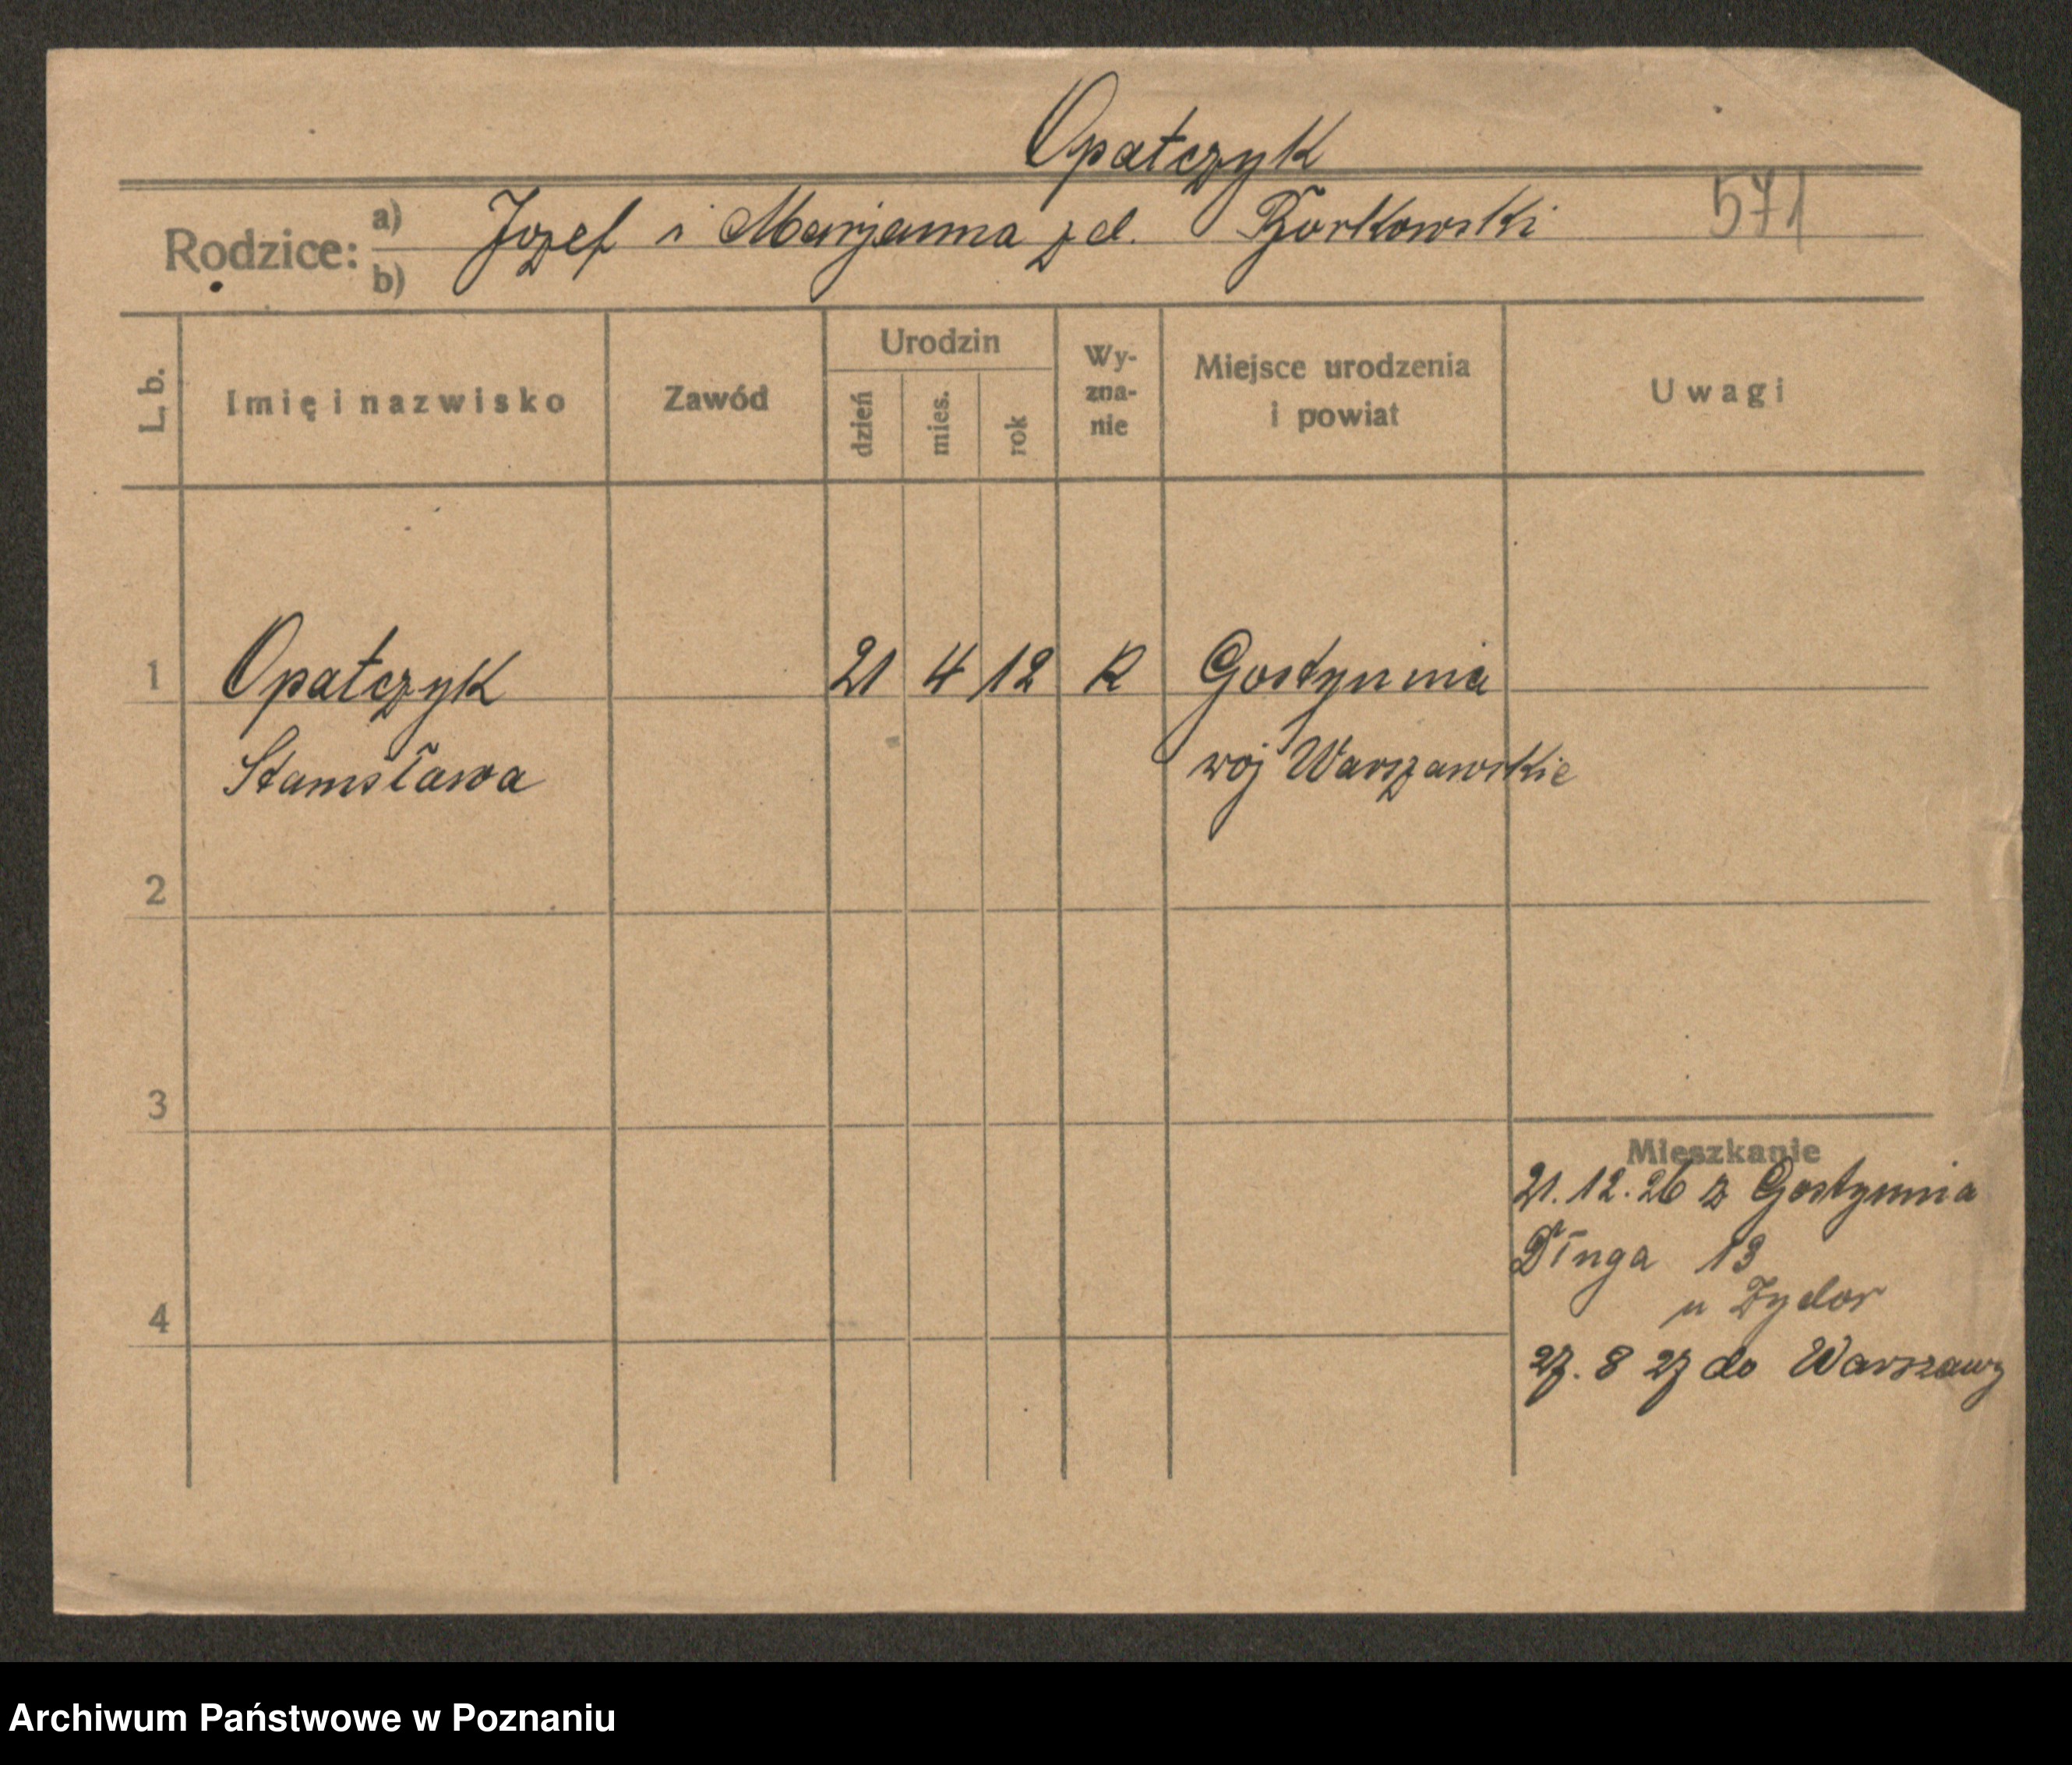 Opatczyk
571
Rodzice: a) Jozef i Marjanna z d.
b)
L. b.
Imię i nazwisko
Zawód
Urodzin
dzień
mies.
rok
Wy-
zna-
nie
Miejsce urodzenia
i powiat
Uwagi
1 Opatczyk 21 4 12 R Gostynnia
Stanisława woj Warszawskie
2
3
4
Mieszkanie
21.12.26 z Gostynnia
Długa 13
u Zydor
27. 8 27 do Warszawy
Archiwum Państwowe w Poznaniu